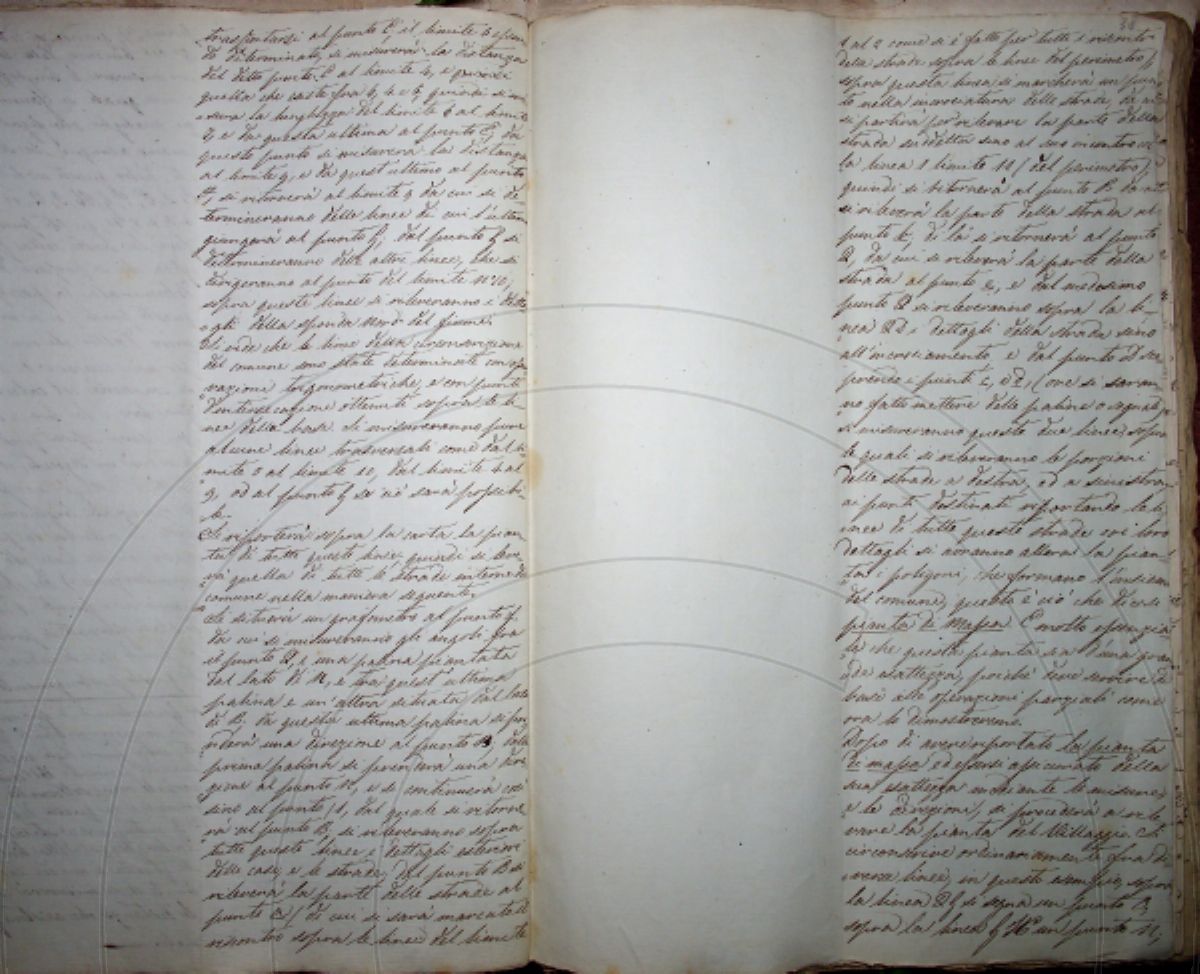 trasportarsi al punto C il limite 6 essen
do determinato, si misurerà la distanza
del detto punto C al limite
quella che esiste fra quindi si mi
surerà la lunghezza del limite 6 al limite
7, e da questa ultima al punto
questo punto si misurerà la distanza
al limite 9, e da quest'ultimo al punto
si ritornerà al limite 9 da cui si de
termineranno delle linee di cui l'ultima
giungerà al punto f; dal punto f si
determineranno delle altre linee, che si
dirigeranno al punto del limite n° 10,
sopra queste linee si rileveranno i detta
gli della sponda Nord del fiume.
Si vede che le linee della circonscrizione
del comune sono state determinate con ope
razioni trigonometriche, e con punti
d'intersecazione ottenuti sopra le li
nee della base. Si misureranno pure
alcune linee trasversali come dal li
mite 0 al limite 10, dal limite 4 al
9, od al punto f se ciò sarà possibi
le.
Si riporterà sopra la carta la pian
ta di tutte queste linee, quindi si leve
rà quella di tutte le strade interne del
comune nella maniera seguente.
Si situerà un grafometro al punto f.
da cui si misureranno gli angoli fra
il punto Q, e una palina piantata
dal lato di N, e tra quest'ultima
palina e un'altra situata dal lato
di P. da questa ultima palina si pren
derà una direzione al punto B, dalla
prima palina si prenderà una dire
zione al punto N, e si continuerà così
sino al punto 1, dal quale si ritorne
rà al punto B, si rileveranno sopra
tutte queste linee i dettagli esteriori
delle case, e le strade; dal punto B si
rileverà la parte delle strade al
punto (di cui si sarà marcato il
riscontro sopra le linee del limite
38
1 al 2 come si è fatto per tutti i riscontri
delle strade sopra le linee del perimetro);
sopra questa linea si marcherà un pun
to nella incrociatura delle strade, da cui
si partirà per rilevare la parte della
strada suddetta sino al suo incontro con
la linea 1 limite 14 (del perimetro);
quindi si ritornerà al punto B. da cui
si rileverà la parte della strada al
punto k, di là si ritornerà al punto
Q, da cui si rileverà la parte della
strada al punto e, e dal medesimo
punto Q si rileveranno sopra la li
nea Qd i dettagli della strada sino
all'incrociamento, e dal punto D sco
prendo i punti (ove si saran
no fatte mettere delle paline o segnali)
si misureranno queste due linee, sopra
le quali si rileveranno le porzioni
delle strade a destra, ed a sinistra
ai punti destinati riportando le li
nee di tutte queste strade coi loro
dettagli si avranno allora la pian
ta i poligoni, che formano l'insieme
del comune, questo è ciò che dicesi
pianta di Massa. È molto essenzia
le che questa pianta sia d'una gran
de esattezza, poichè deve servire di
base alle operazioni parziali come
ora lo dimostreremo.
Dopo di avere riportato la pianta
di massa ed essersi assicurato della
sua esattezza mediante le misure,
e le direzioni, si procederà a rile
vare la pianta del Villaggio. Si
circonscrive ordinariamente fra di
verse linee, in questo esempio, sopra
la linea Qf si segna un punto P,
sopra la linea f H un punto N,